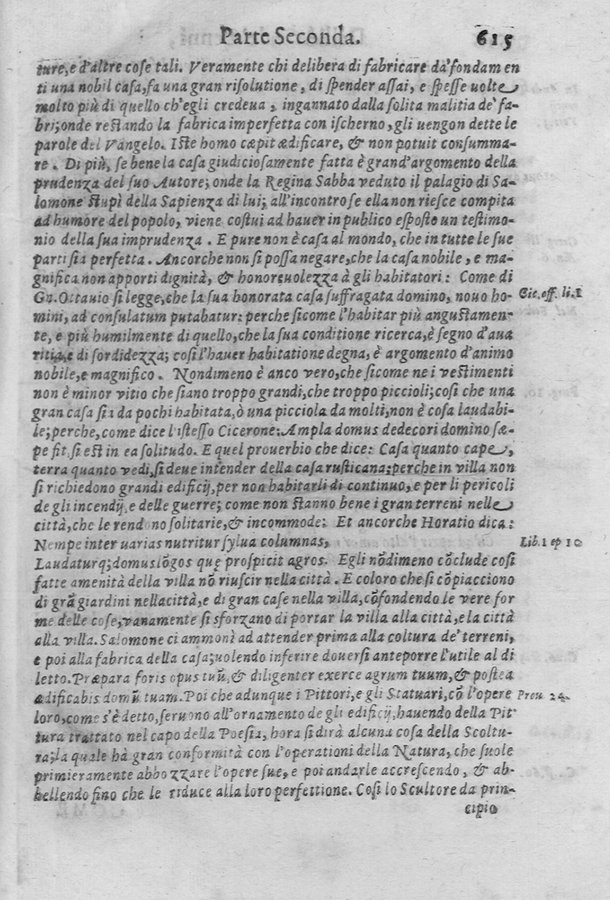 Parte Seconda. 615
ture, e d'altre cose tali. Veramente chi delibera di fabricare da' fondamen
ti una nobil casa, fa una gran risolutione, di spender assai, e spesse uolte
molto più di quello ch'egli credeua, ingannato dalla solita malitia de' fa-
bri; onde restando la fabrica imperfetta con ischerno, gli uengon dette le
parole del Vangelo. Iste homo cæpit ædificare, & non potuit consumma-
re. Di più, se bene la casa giudiciosamente fatta è grand'argomento della
prudenza del suo Autore; onde la Regina Sabba veduto il palagio di Sa-
lomone stupì della Sapienza di lui; all'incontro se ella non riesce compita
ad humore del popolo, viene costui ad hauer in publico esposte un testimo-
nio della sua imprudenza. E pure non è casa al mondo, che in tutte le sue
parti sia perfetta. Ancorche non si possa negare, che la casa nobile, e ma-
gnifica non apporti dignità, & honoreuolezza à gli habitatori: Come di
Gn. Ottauio si legge, che la sua honorata casa suffragata domino, nouo ho- Cic. off. li. 1
mini, ad consulatum putabatur: perche sicome l'habitar più angustamen-
te, e più humilmente di quello, che la sua conditione ricerca, è segno d'aua
ritia, e di sordidezza; cosi l'hauer habitatione degna, è argomento d'animo
nobile, e magnifico. Nondimeno è anco vero, che sicome ne i vestimenti
non è minor vitio che siano troppo grandi, che troppo piccioli; cosi che una
gran casa sia da pochi habitata, ò una picciola da molti, non è cosa laudabi-
le; perche, come dice l'istesso Cicerone: Ampla domus dedecori domino sæ-
pe fit, si est in ea solitudo. E quel prouerbio che dice: Casa quanto cape,
terra quanto vedi, si deue intender della casa rusticana: perche in villa non
si richiedono grandi edificij, per non habitarli di continuo, e per li pericoli
de gli incendij, e delle guerre; come non stanno bene i gran terreni nelle
città, che le rendono solitarie, & incommode: Et ancorche Horatio dica:
Nempe inter uarias nutritur sylua columnas, Lib. 1 ep 10
Laudaturq; domus lõgos que prospicit agros. Egli nõdimeno cõclude cosi
fatte amenità della villa nõ riuscir nella città. E coloro che si cõpiacciono
di grã giardini nella città, e di gran case nella villa, cõfondendo le vere for
me delle cose, vanamente si sforzano di portar la villa alla città, e la città
alla villa. Salomone ci ammonì ad attender prima alla coltura de' terreni,
e poi alla fabrica della casa; uolendo inferire douersi anteporre l'utile al di
letto. Præpara foris opus tuũ, & diligenter exerce agrum tuum, & postea
ædificabis domũ tuam. Poi che adunque i Pittori, e gli Statuari, cõ l'opere Prou. 24.
loro, come s'è detto, seruono all'ornamento de gli edificij, hauendo della Pit
tura trattato nel capo della Poesia, hora si dirà alcuna cosa della Scoltu-
ra; la quale hà gran conformità con l'operationi della Natura, che suole
primieramente abbozzare l'opere sue, e poi andarle accrescendo, & ab-
bellendo fino che le riduce alla loro perfettione. Cosi lo Scultore da prin-
cipio